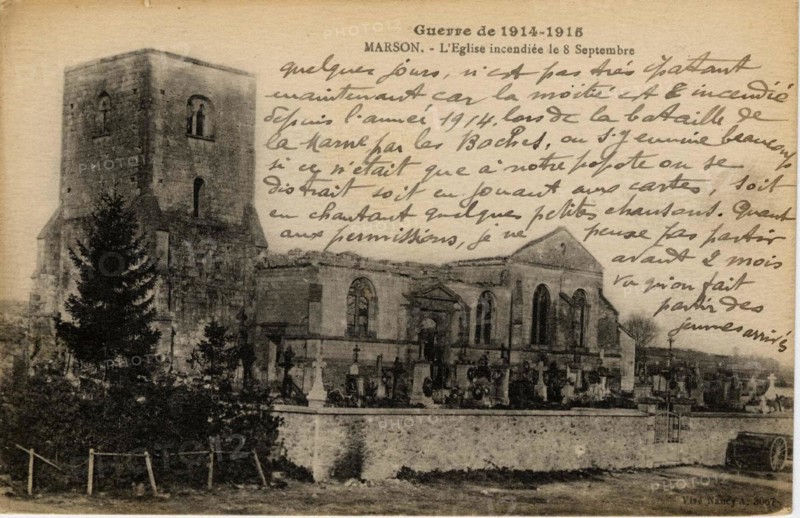 Guerre de 1914-1915
MARSON. - L'Eglise incendiée le 8 Septembre
quelques jours, n'est pas très épatant
maintenant car la moitié est incendié
depuis l'année 1914, lors de la bataille de
la Marne par les Boches, on s'y ennuie beaucoup
si ce n'était que à notre popote on se
distrait soit en jouant aux cartes, soit
en chantant quelques petites chansons. Quant
aux permissions, je ne pense pas partir
avant 2 mois
vu qu'on fait
partir des
jeunes arrivés
PHOTO12
Nancy A. 3067